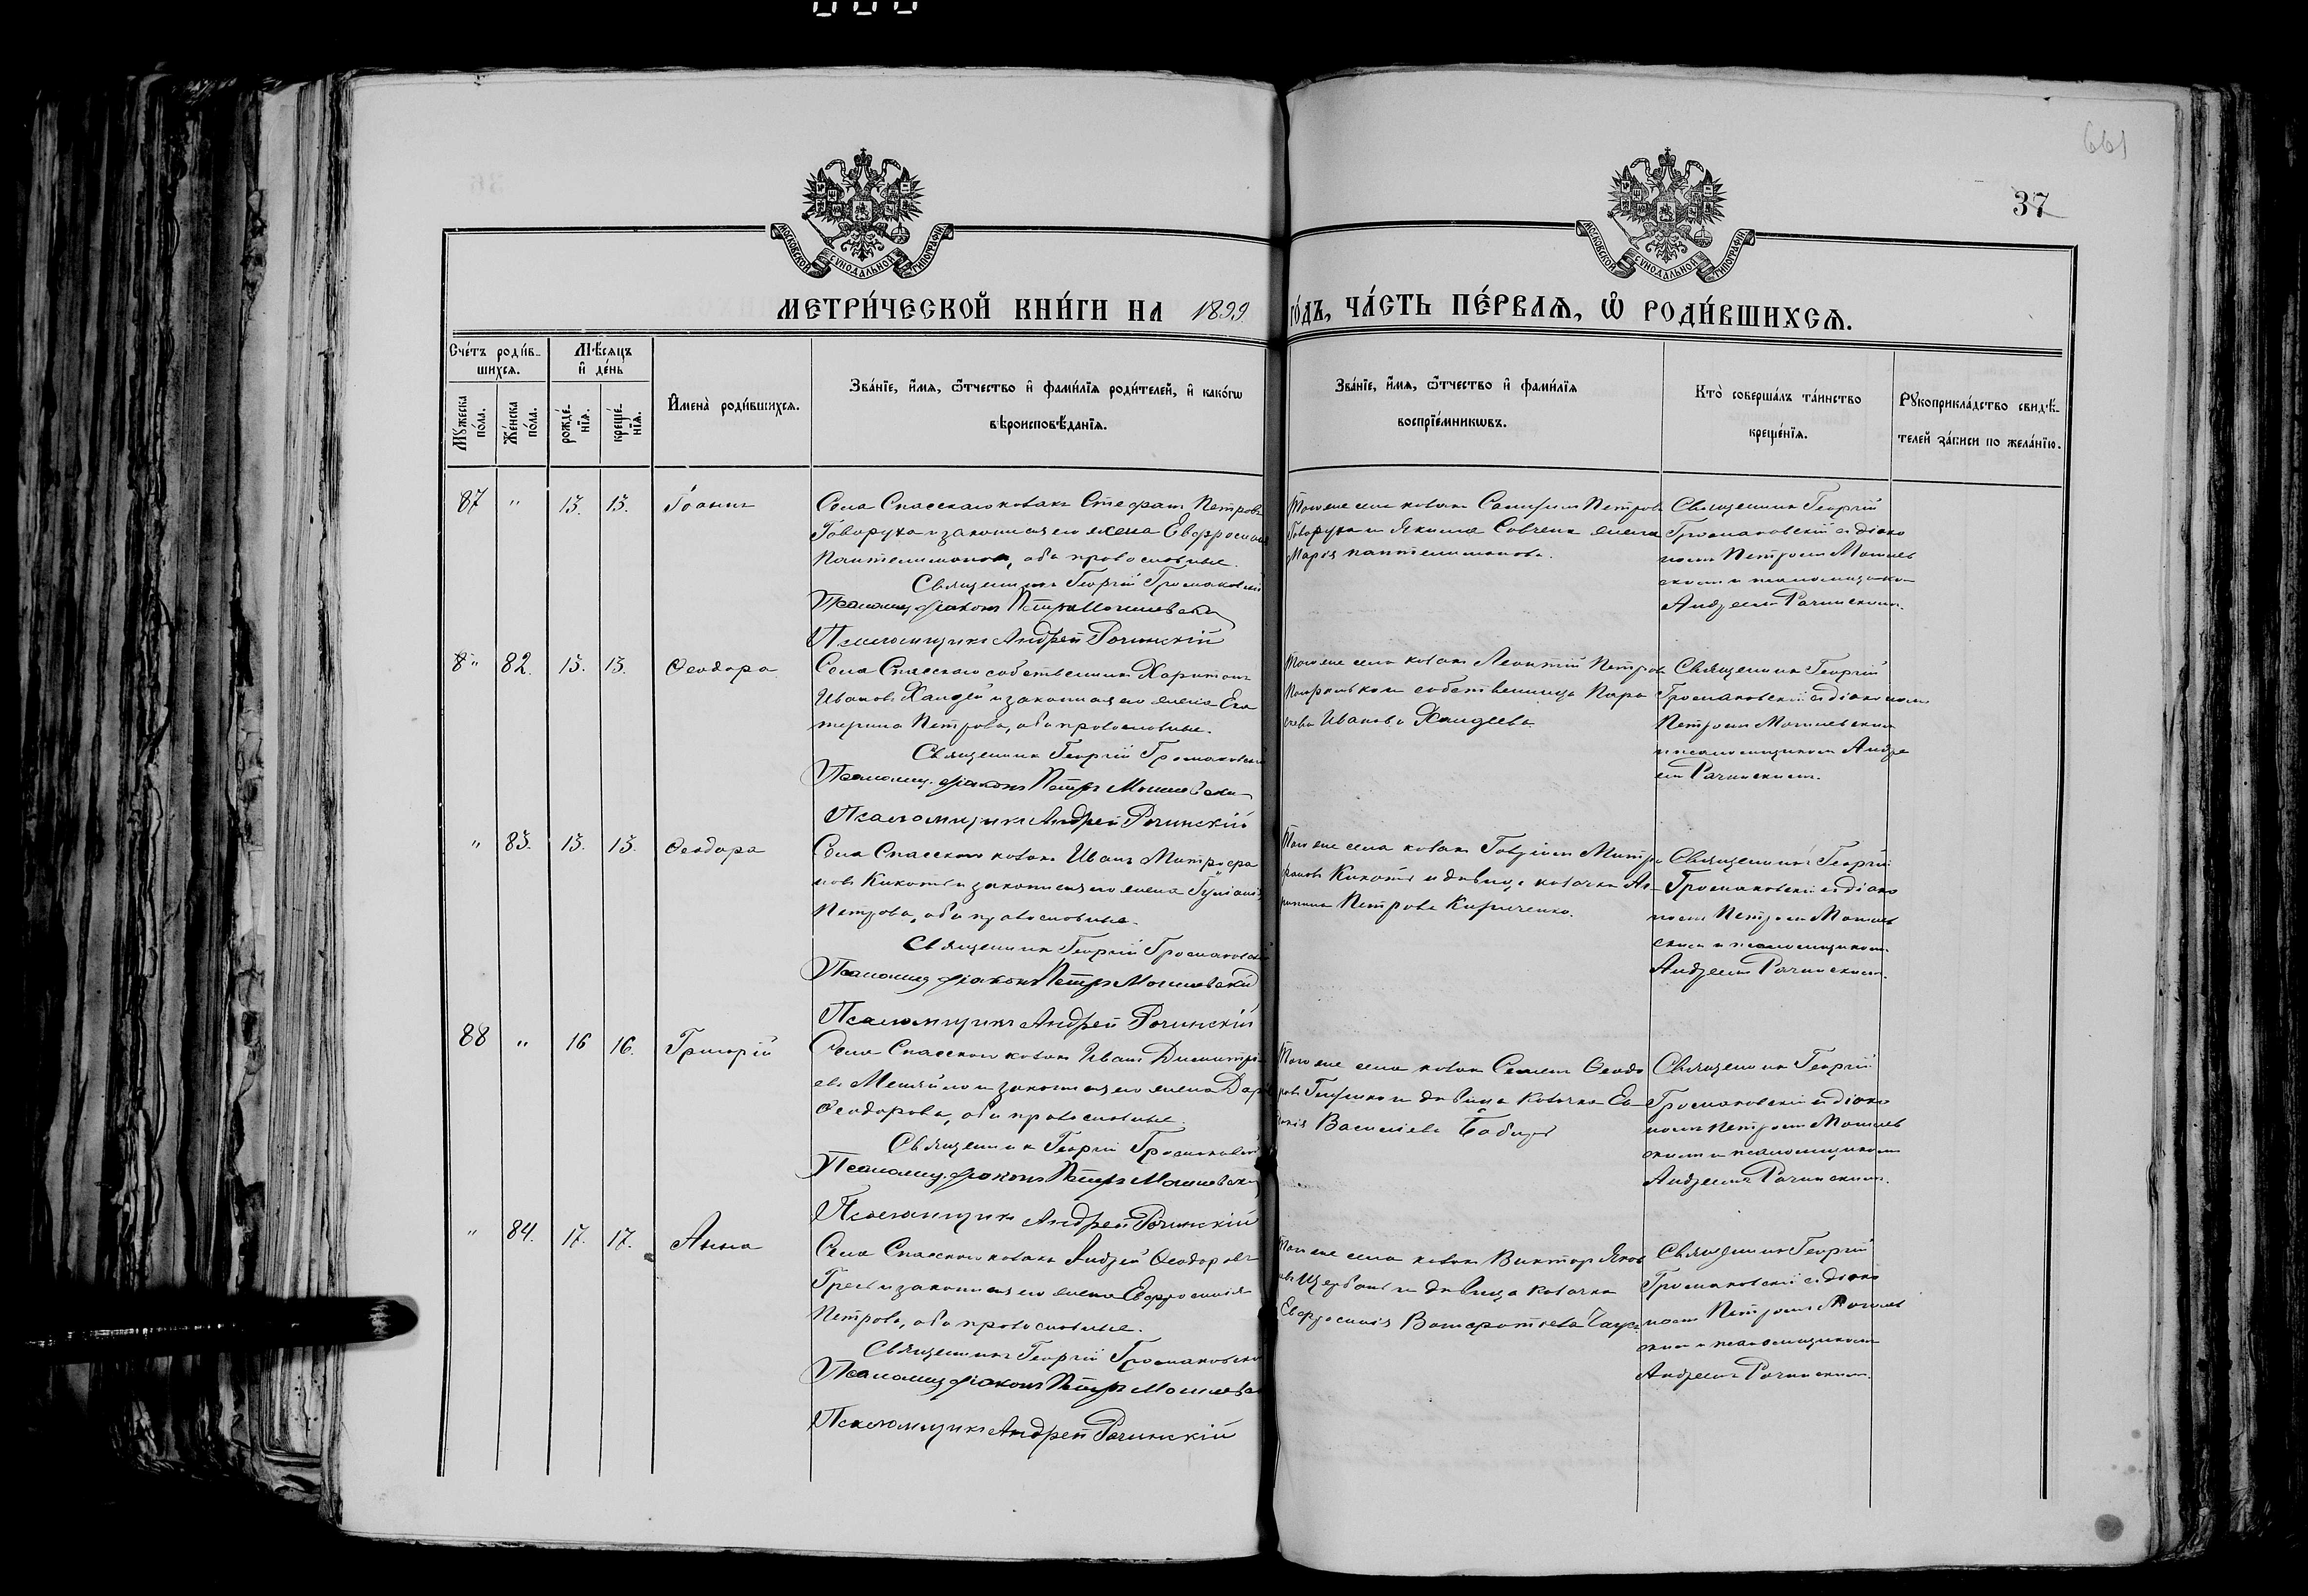 661
37
МОСКОВСКОЙ СѴНОДАЛЬНОЙ ТИПОГРАФІИ
МОСКОВСКОЙ СѴНОДАЛЬНОЙ ТИПОГРАФІИ
МЕТРИ́ЧЕСКОЙ КНИ́ГИ НА 1899 ГО́ДЪ, ЧА́СТЬ ПЕ́РВАѦ, Ѡ҆ РОДИ́ВШИХСѦ.
Сче́тъ роди́в-
шихсѧ.
Мꙋ́жеска по́ла.
Же́нска по́ла.
Мѣ́сѧцъ и҆ де́нь
рожде́-
нїѧ.
креще́-
нїѧ.
И҆мена̀ роди́вшихсѧ.
Зва́нїе, и҆́мѧ, ѻ҆́тчество и҆ фами́лїѧ роди́телей, и҆ како́гѡ
вѣроисповѣ́данїѧ.
Зва́нїе, и҆́мѧ, ѻ҆́тчество и҆ фами́лїѧ
воспрїе́мникѡвъ.
Кто̀ соверша́лъ та́инство
креще́нїѧ.
Рꙋкоприкла́дство свидѣ́-
телей за́писи по жела́нїю.
87 " 13. 13. Іоаннъ
Села Спасскаго козакъ Стефанъ Петровъ
Говоруха и законная его жена Евфросинія
Пантелимонова, оба православные.
Священникъ Георгій Громаковскій
Псаломщ. діаконъ Петръ Могилевскій
Псаломщикъ Андрей Рачинскій
Того же села козакъ Петров
Говоруха и Якима Савченка жена
Марія Пантелимонова.
Священникъ Георгій
Громаковскій съ діако
номъ Петромъ Могилев
скимъ и псаломщико
Андреемъ Рачинскимъ.
8 " 82. 13. 13. Ѳеодора
Села Спасскаго собственникъ Харитонъ
Ивановъ и законная его жена Ека
терина Петрова, оба православные.
Священникъ Георгій Громаковскій
Псаломщ. діаконъ Петръ Могилевскій
Псаломщикъ Андрей Рачинскій
Того же села козакъ Леонтій Петров
и собственница Пара
скева Иванова
Священникъ Георгій
Громаковскій съ діакономъ
Петромъ Могилевскимъ
и псаломщикомъ Андре
емъ Рачинскимъ.
" 83. 13. 13. Ѳеодора
Села Спасскаго козакъ Иванъ Митрофа
новъ Кикоть и законная его жена Іуліанія
Петрова, оба православные.
Священникъ Георгій Громаковскій
Псаломщ. діаконъ Петръ Могилевскій
Псаломщикъ Андрей Рачинскій
Того же села козакъ Гавріилъ Митро
фановъ Кикоть и дѣвица козачка Аг-
рипина Петрова Кириченко.
Священникъ Георгій
Громаковскій съ діако
номъ Петромъ Могилев
скимъ и псаломщикомъ
Андреемъ Рачинскимъ.
88 " 16 16. Григорій
Села Спасскаго козакъ Иванъ Димитрі
евъ и законная его жена Дарія
Ѳеодорова, оба православные.
Священникъ Георгій Громаковскій
Псаломщ. діаконъ Петръ Могилевскій
Псаломщикъ Андрей Рачинскій
Того же села козакъ Семенъ Ѳеодо
ровъ и дѣвица козачка Ев-
докія Василіева
Священникъ Георгій
Громаковскій съ діако
номъ Петромъ Могилев
скимъ и псаломщикомъ
Андреемъ Рачинскимъ.
" 84. 17. 17. Анна
Села Спасскаго козакъ Андрей Ѳеодоровъ
и законная его жена Евфросинія
Петрова, оба православные.
Священникъ Георгій Громаковскій
Псаломщ. діаконъ Петръ Могилевскій
Псаломщикъ Андрей Рачинскій
Того же села козакъ Викторъ Яков
левъ Щербань и дѣвица козачка
Евфросинія
Священникъ Георгій
Громаковскій съ діако
номъ Петромъ Могилев
скимъ и псаломщикомъ
Андреемъ Рачинскимъ.